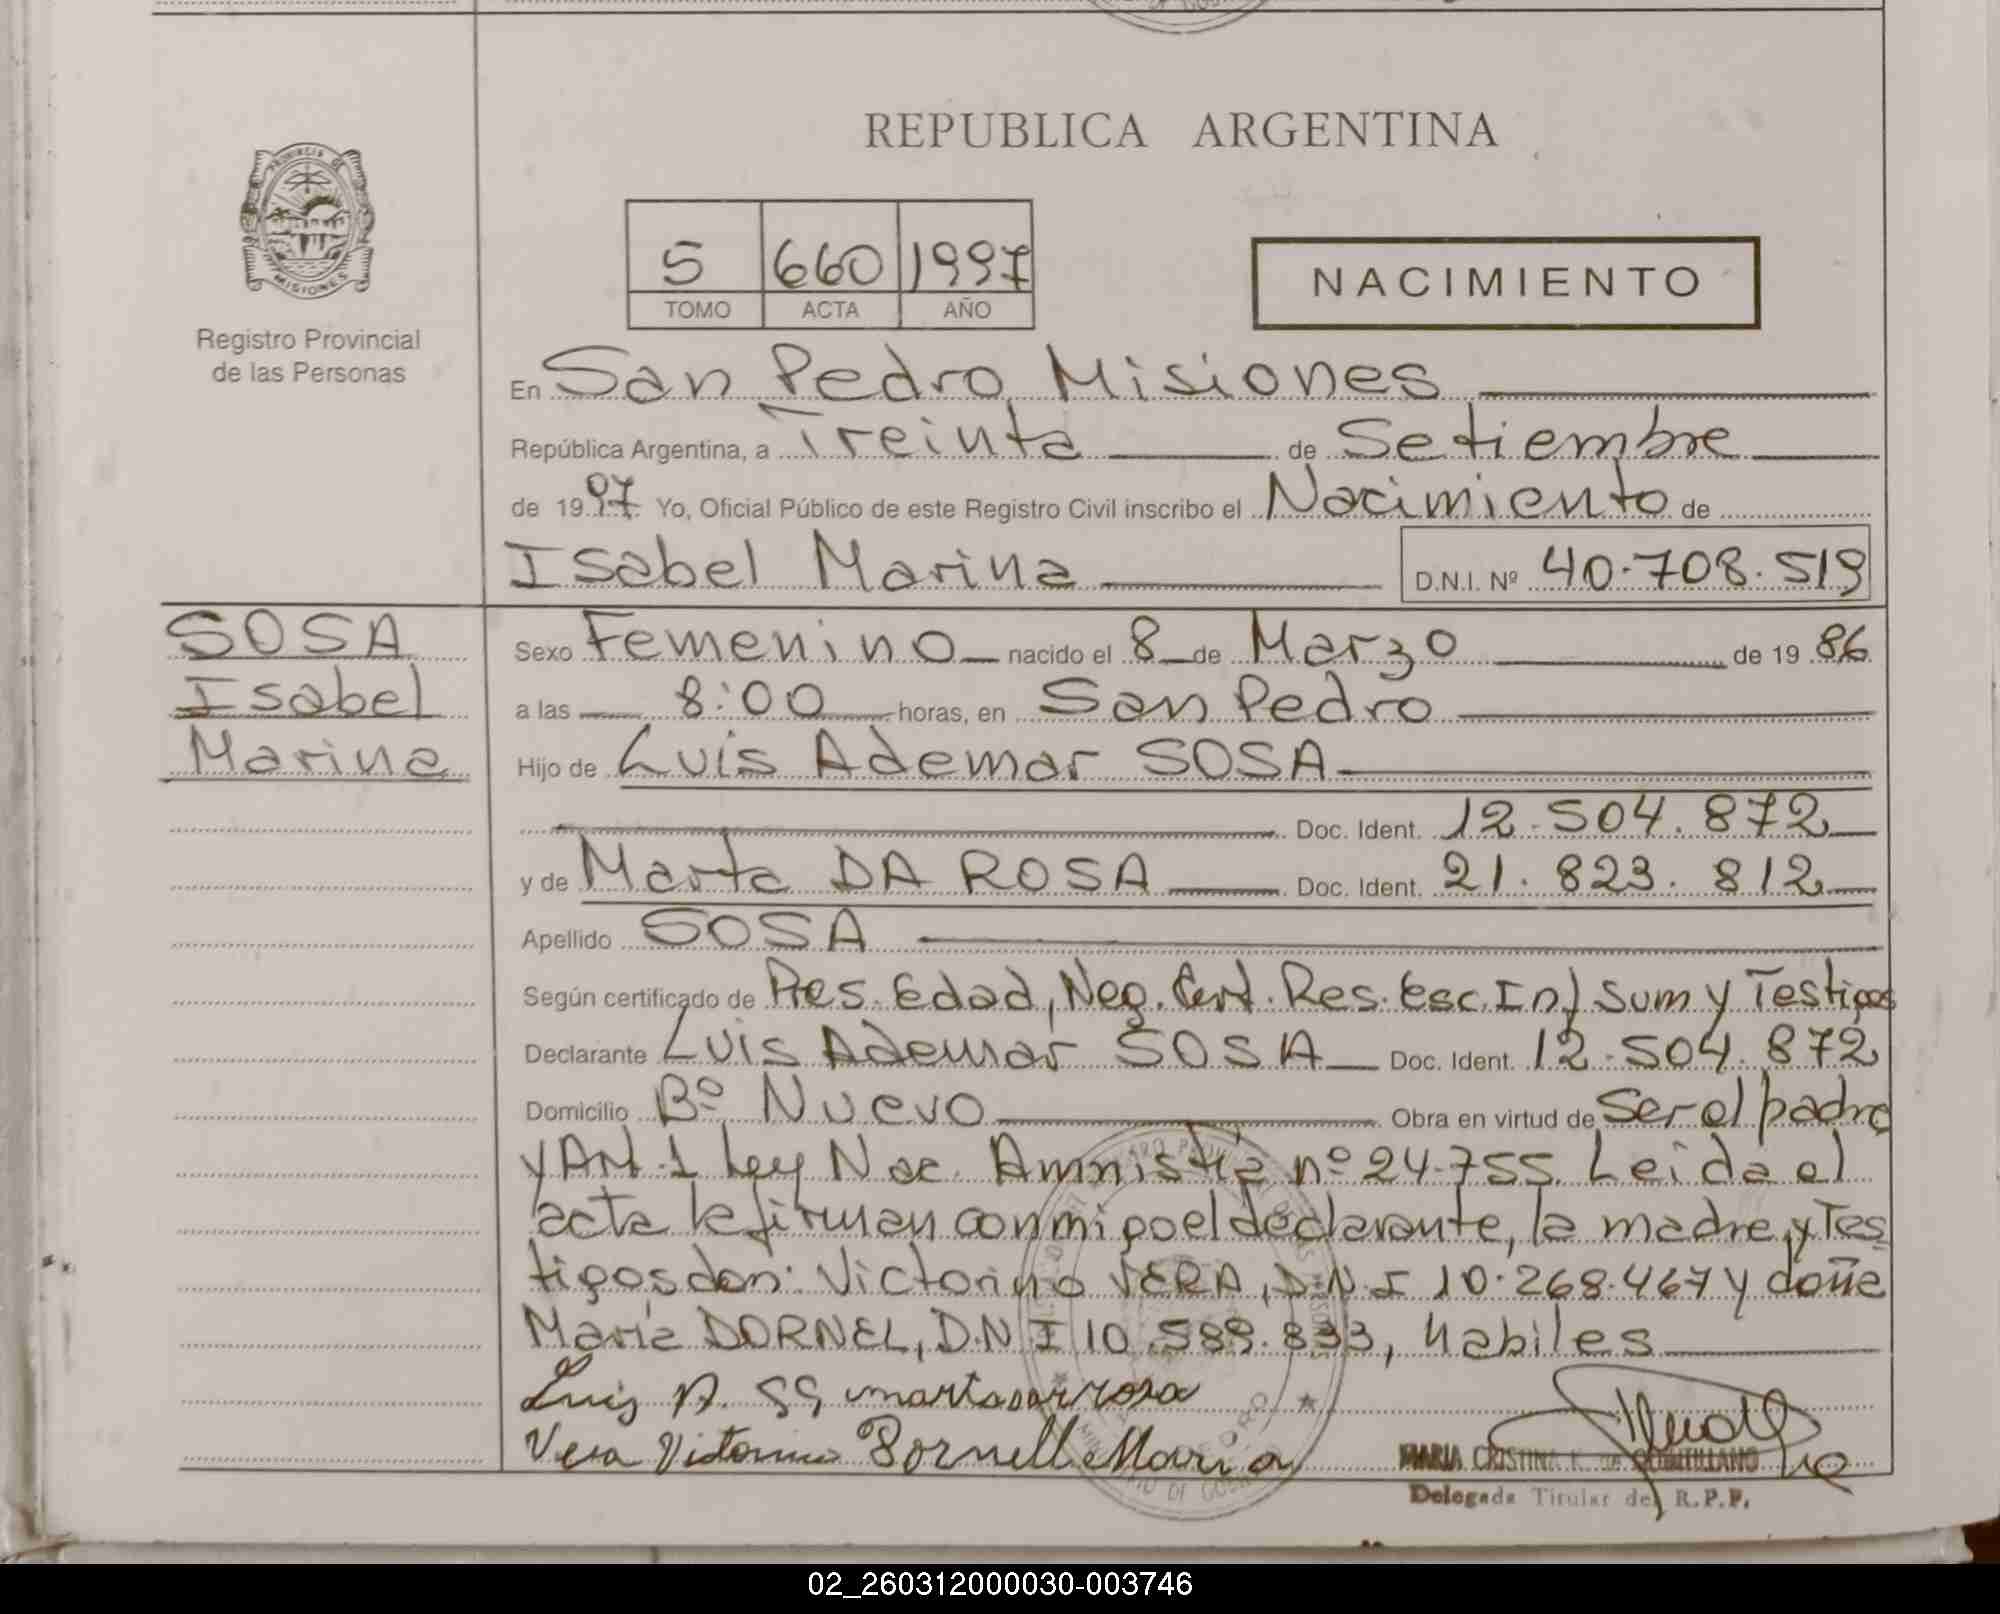 REPUBLICA ARGENTINA
PROVINCIA DE MISIONES
Registro Provincial
de las Personas
5 660 1997
TOMO ACTA AÑO
NACIMIENTO
En San Pedro, Misiones
República Argentina, a Treinta de Setiembre
de 19 97 Yo, Oficial Público de este Registro Civil inscribo el Nacimiento de
Isabel Marina D.N.I. Nº 40.708.519
SOSA
Isabel
Marina
Sexo Femenino nacido el 8 de Marzo de 19 86
a las 8:00 horas, en San Pedro
Hijo de Luis Ademar SOSA
Doc. Ident. 12.504.872
y de Marta DA ROSA Doc. Ident. 21.823.812
Apellido SOSA
Según certificado de Pres. Edad, Neg. Cert. Res. Esc. Inf Sum y Testigos
Declarante Luis Ademar SOSA Doc. Ident. 12.504.872
Domicilio Bº Nuevo Obra en virtud de Ser el padre
y Art. 1 Ley Nac. Amnistia nº 24.755. Leida el
acta la firman conmigo el declarante, la madre y Tes
tigos don: Victorino VERA, D.N.I 10.268.467 y doña
Maria DORNEL, D.N.I 10.589.833, habiles
Luis A. martadarrosa
Vera Victorino Dornell Maria
MARIA CRISTINA K. de QUINTILLANO
Delegada Titular del R.P.P.
02_260312000030-003746